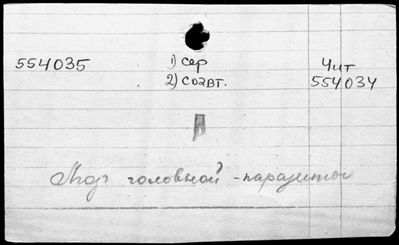 554035 1) Сер Чит
2) Созвт. 554034
Л
Мозг головной - паразиты